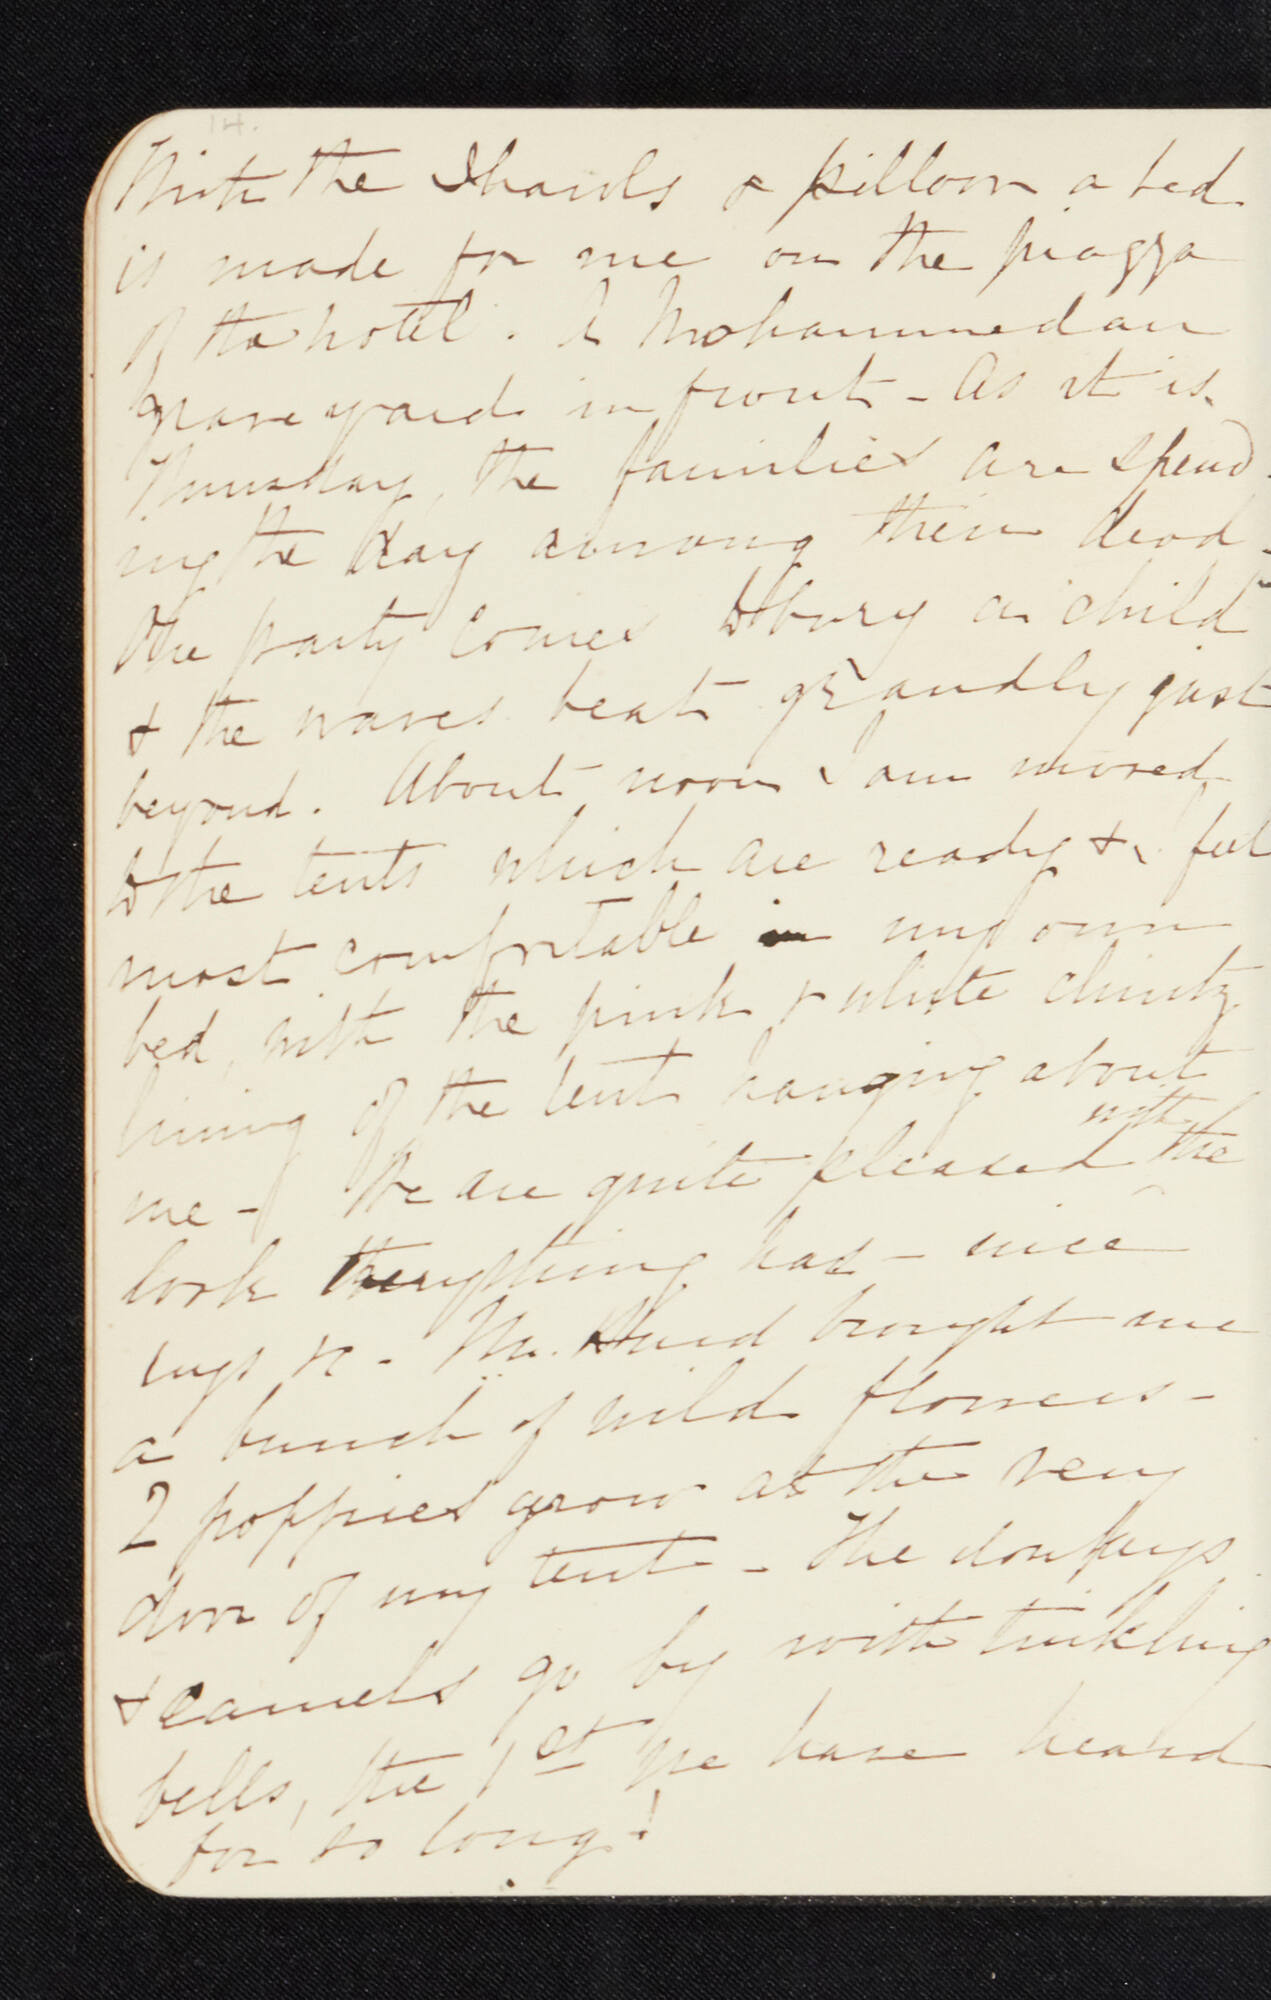 14.
With the Shawls & pillow a bed
is made for me on the piazza
of the hotel. A Mohammedan
grave yard in front - As it is
Thursday, the families are spend-
ing the day among their dead -
One party comes to bury a child
& the waves beat grandly just
beyond. About noon I am moved
to the tents which are ready & I feel
most comfortable in my own
bed, with the pink & white chintz
lining of the tent hanging about
me - We are quite pleased with the
look everything has - nice
rugs &c - Mr. Hurd brought me
a bunch of wild flowers -
2 poppies grow at the very
door of my tent - The donkeys
& camels go by with tinkling
bells, the 1st we have heard
for so long!